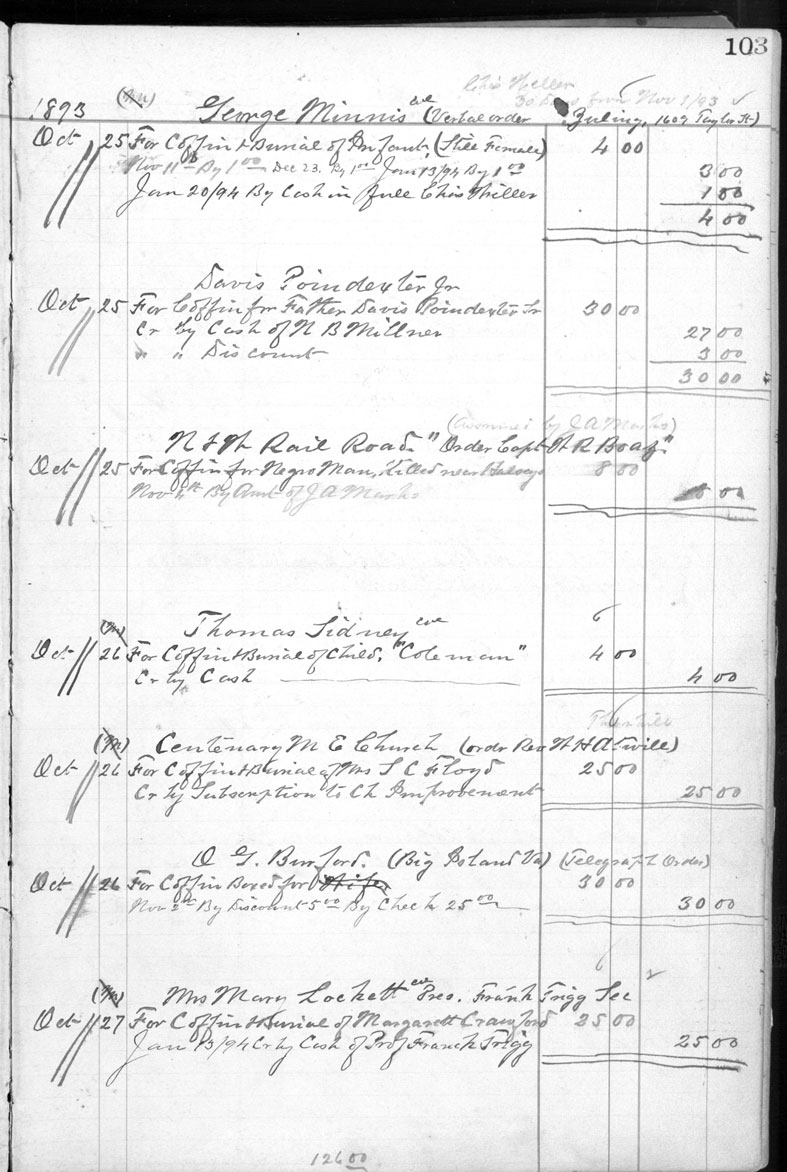 103
Chis Miller
30 Days from Nov 1/93 ✓
1893 (M) George Minnis col (Verbal order Zuling, 1609 Taylor St)
Oct 25 For Coffin & Burial of Infant, (Still Female) 4 00
Nov 11th By 1 00 Dec 23. By 1 00 Jan 13/94 By 1 00 3 00
Jan 20/94 By Cash in full Chis Miller 1 00
4 00
Davis Poindexter Jr
Oct 25 For Coffin for Father Davis Poindexter Sr 30 00
Cr by Cash of N B Millner 27 00
" " Discount 3 00
30 00
(Assumed by J A Marks)
N & W Rail Road. "Order Capt W R Boaz"
Oct 25 For Coffin for Negro Man, Killed near Halseys 8 00
Nov 4th By Amt of J A Marks 8 00
(M) Thomas Sidney col 6
Oct 26 For Coffin & Burial of Child, "Coleman" 4 00
Cr by Cash 4 00
(M) Centenary M E Church (ordr Rev W H Atwill)
Oct 26 For Coffin & Burial of Mrs S C Floyd 25 00
Cr by Subscription to Ch Improvement 25 00
O G. Burford. (Big Island Va) (Telegraph Order)
Oct 26 For Coffin Boxed for Wife 30 00
Nov 2nd By Discount 5 00 By Check 25 00 30 00
6
(M) Mrs Mary Lockett col Pres. Frank Trigg Sec
Oct 27 For Coffin & Burial of Margarett Crawford 25 00
Jan 13/94 Cr by Cash of Prof Franck Trigg 25 00
126 00